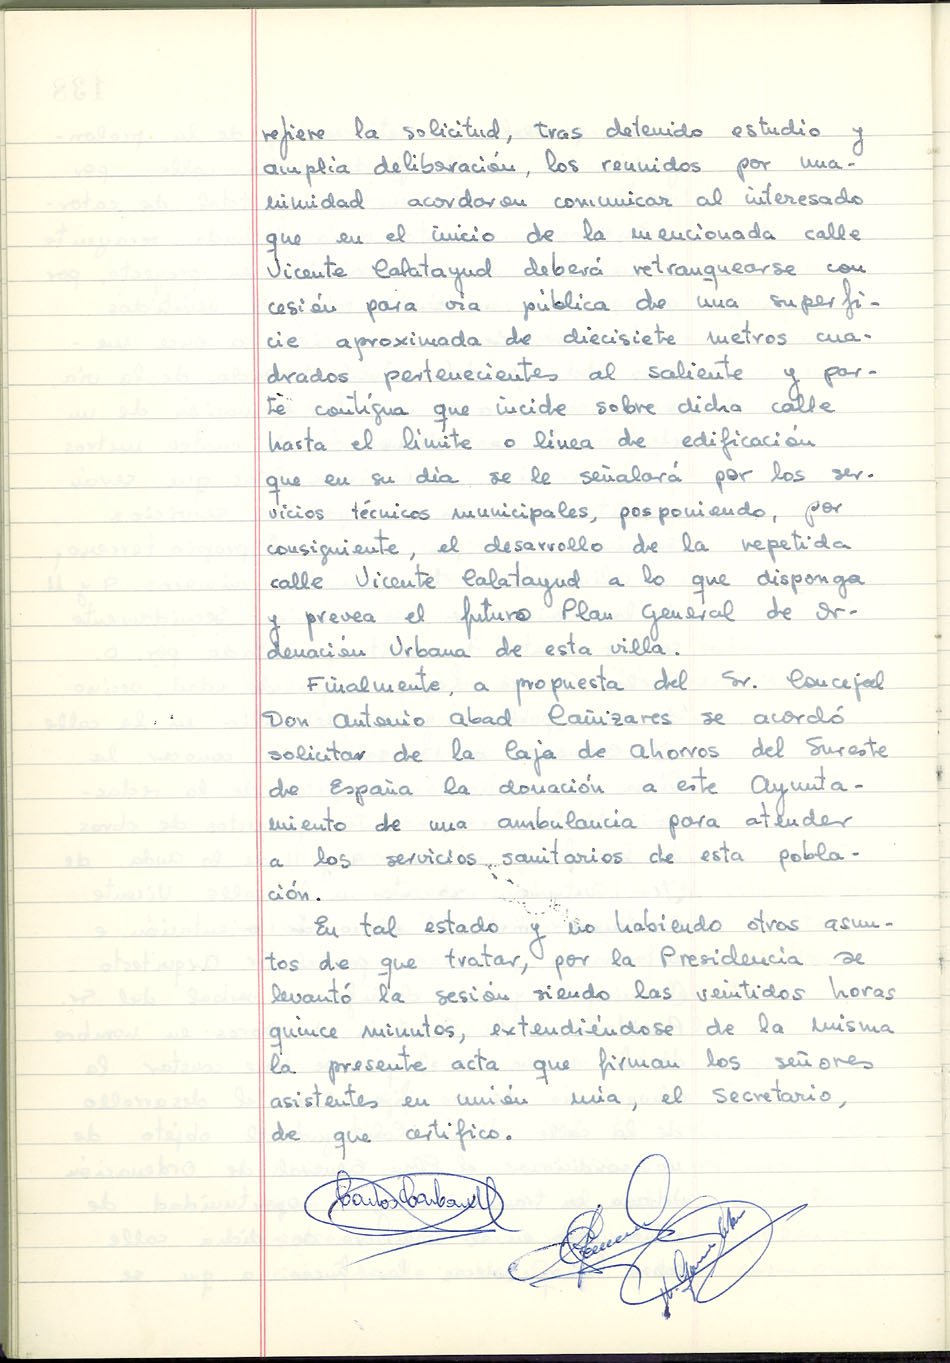 refiere la solicitud, tras detenido estudio y
amplia deliberación, los reunidos por una-
nimidad acordaron comunicar al interesado
que en el inicio de la mencionada calle
Vicente Calatayud deberá retranquearse con
cesión para vía pública de una superfi-
cie aproximada de diecisiete metros cua-
drados pertenecientes al saliente y par-
te contígua que incide sobre dicha calle
hasta el límite o línea de edificación
que en su día se le señalará por los ser-
vicios técnicos municipales, posponiendo, por
consiguiente, el desarrollo de la repetida
calle Vicente Calatayud a lo que disponga
y prevea el futuro Plan General de Or-
denación Urbana de esta villa.
Finalmente, a propuesta del Sr. Concejal
Don Antonio Abad Cañizares se acordó
solicitar de la Caja de Ahorros del Sureste
de España la donación a este Ayunta-
miento de una ambulancia para atender
a los servicios sanitarios de esta pobla-
ción.
En tal estado y no habiendo otros asun-
tos de que tratar, por la Presidencia se
levantó la sesión siendo las veintidos horas
quince minutos, extendiéndose de la misma
la presente acta que firman los señores
asistentes en unión mía, el Secretario,
de que certifico.